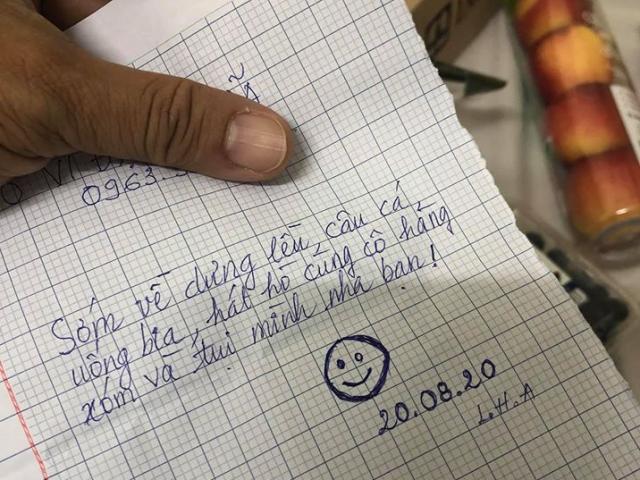 0963
Sớm về dựng lều, câu cá,
uống bia, hát hò cùng cô hàng
xóm và tụi mình nha bạn!
20.08.20
L.H.A